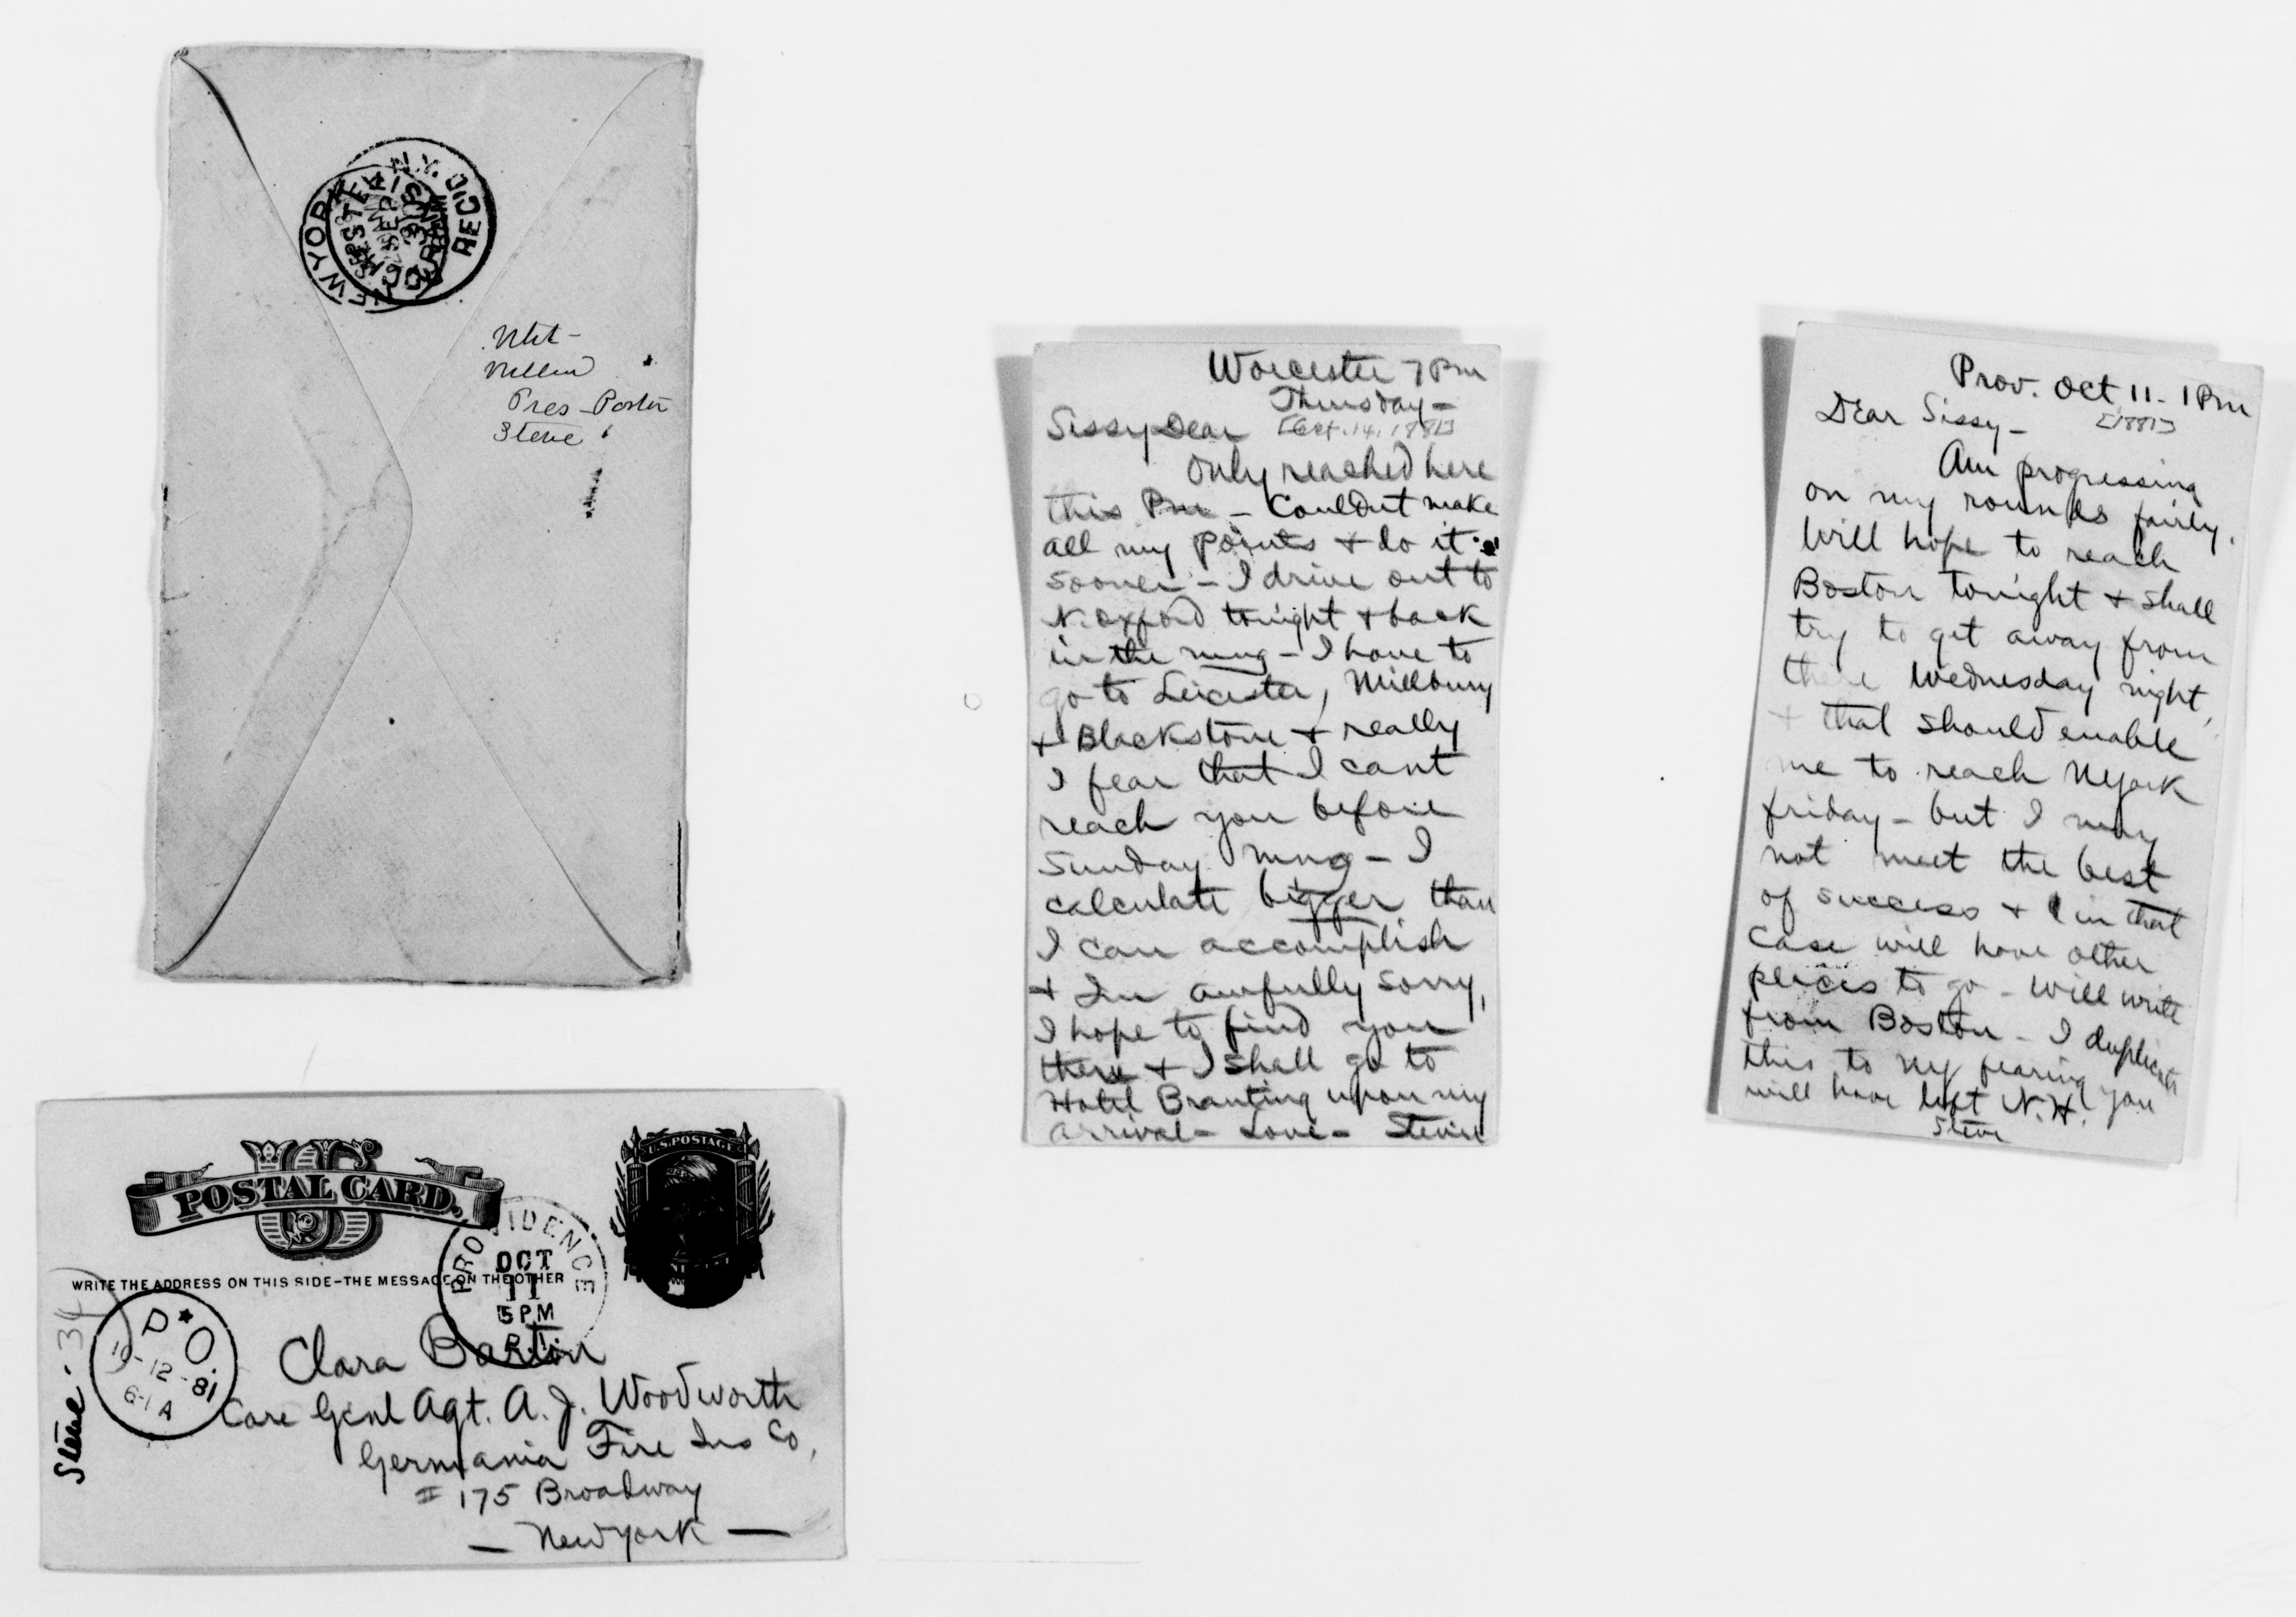 NEW YORK N.Y. REC'D
Pres - Porter
Steve
POSTAL CARD.
U.S. POSTAGE
WRITE THE ADDRESS ON THIS SIDE-THE MESSAGE ON THE OTHER
PROVIDENCE
OCT
11
5 PM
R.I.
P.O.
10-12-81
6-1 A
Steve. 34
Clara Barton
Care Genl Agt. A. J. Woodworth
Germania Fire Ins Co,
# 175 Broadway
- New York -
Worcester 7 Pm
Thursday -
[Oct. 14, 1881]
Sissy Dear
Only reached here
this Pm - Couldnt make
all my points & do it
sooner - I drive out to
N. Oxford tonight & back
in the mng - I have to
go to Leicester, Millbury
& Blackstone & really
I fear that I cant
reach you before
Sunday mng - I
calculate bigger than
I can accomplish
& Im awfully sorry,
I hope to find you
there & I shall go to
Hotel Branting upon my
arrival - Love - Stevie
Prov. Oct 11 - 1 Pm
[1881]
Dear Sissy -
Am progressing
on my rounds fairly.
Will hope to reach
Boston tonight & shall
try to get away from
there Wednesday night,
& that should enable
me to reach NYork
friday - but I may
not meet the best
of success & in that
case will have other
places to go - Will write
from Boston - I duplicate
this to NY fearing you
will have left N.H.
Steve